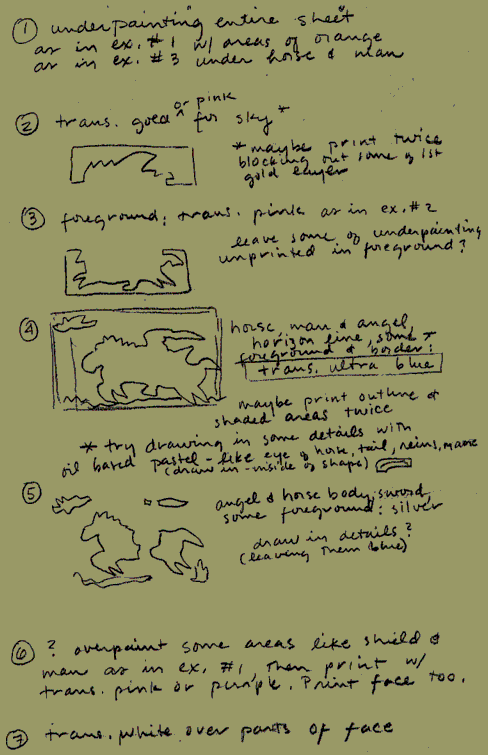 ① underpainting entire sheet
as in ex. #1 w/ areas of orange
as in ex. #3 under horse & man
② trans. gold ^ or pink for sky *
* maybe print twice
blocking out some of 1st
gold layer
③ foreground: trans. pink as in ex. #2
leave some of underpainting
unprinted in foreground?
④ horse, man & angel
horizon line, some *
foreground & border:
trans. ultra blue
maybe print outline &
shaded areas twice
* try drawing in some details with
oil based pastel - like eye of horse, tail, reins, mane
(draw in - inside of shape)
⑤ angel & horse body, sword,
some foreground: silver
draw in details?
(leaving them blue)
⑥ ? overpaint some areas like shield &
man as in ex. #1, then print w/
trans. pink or purple. Print face too.
⑦ trans. white over parts of face